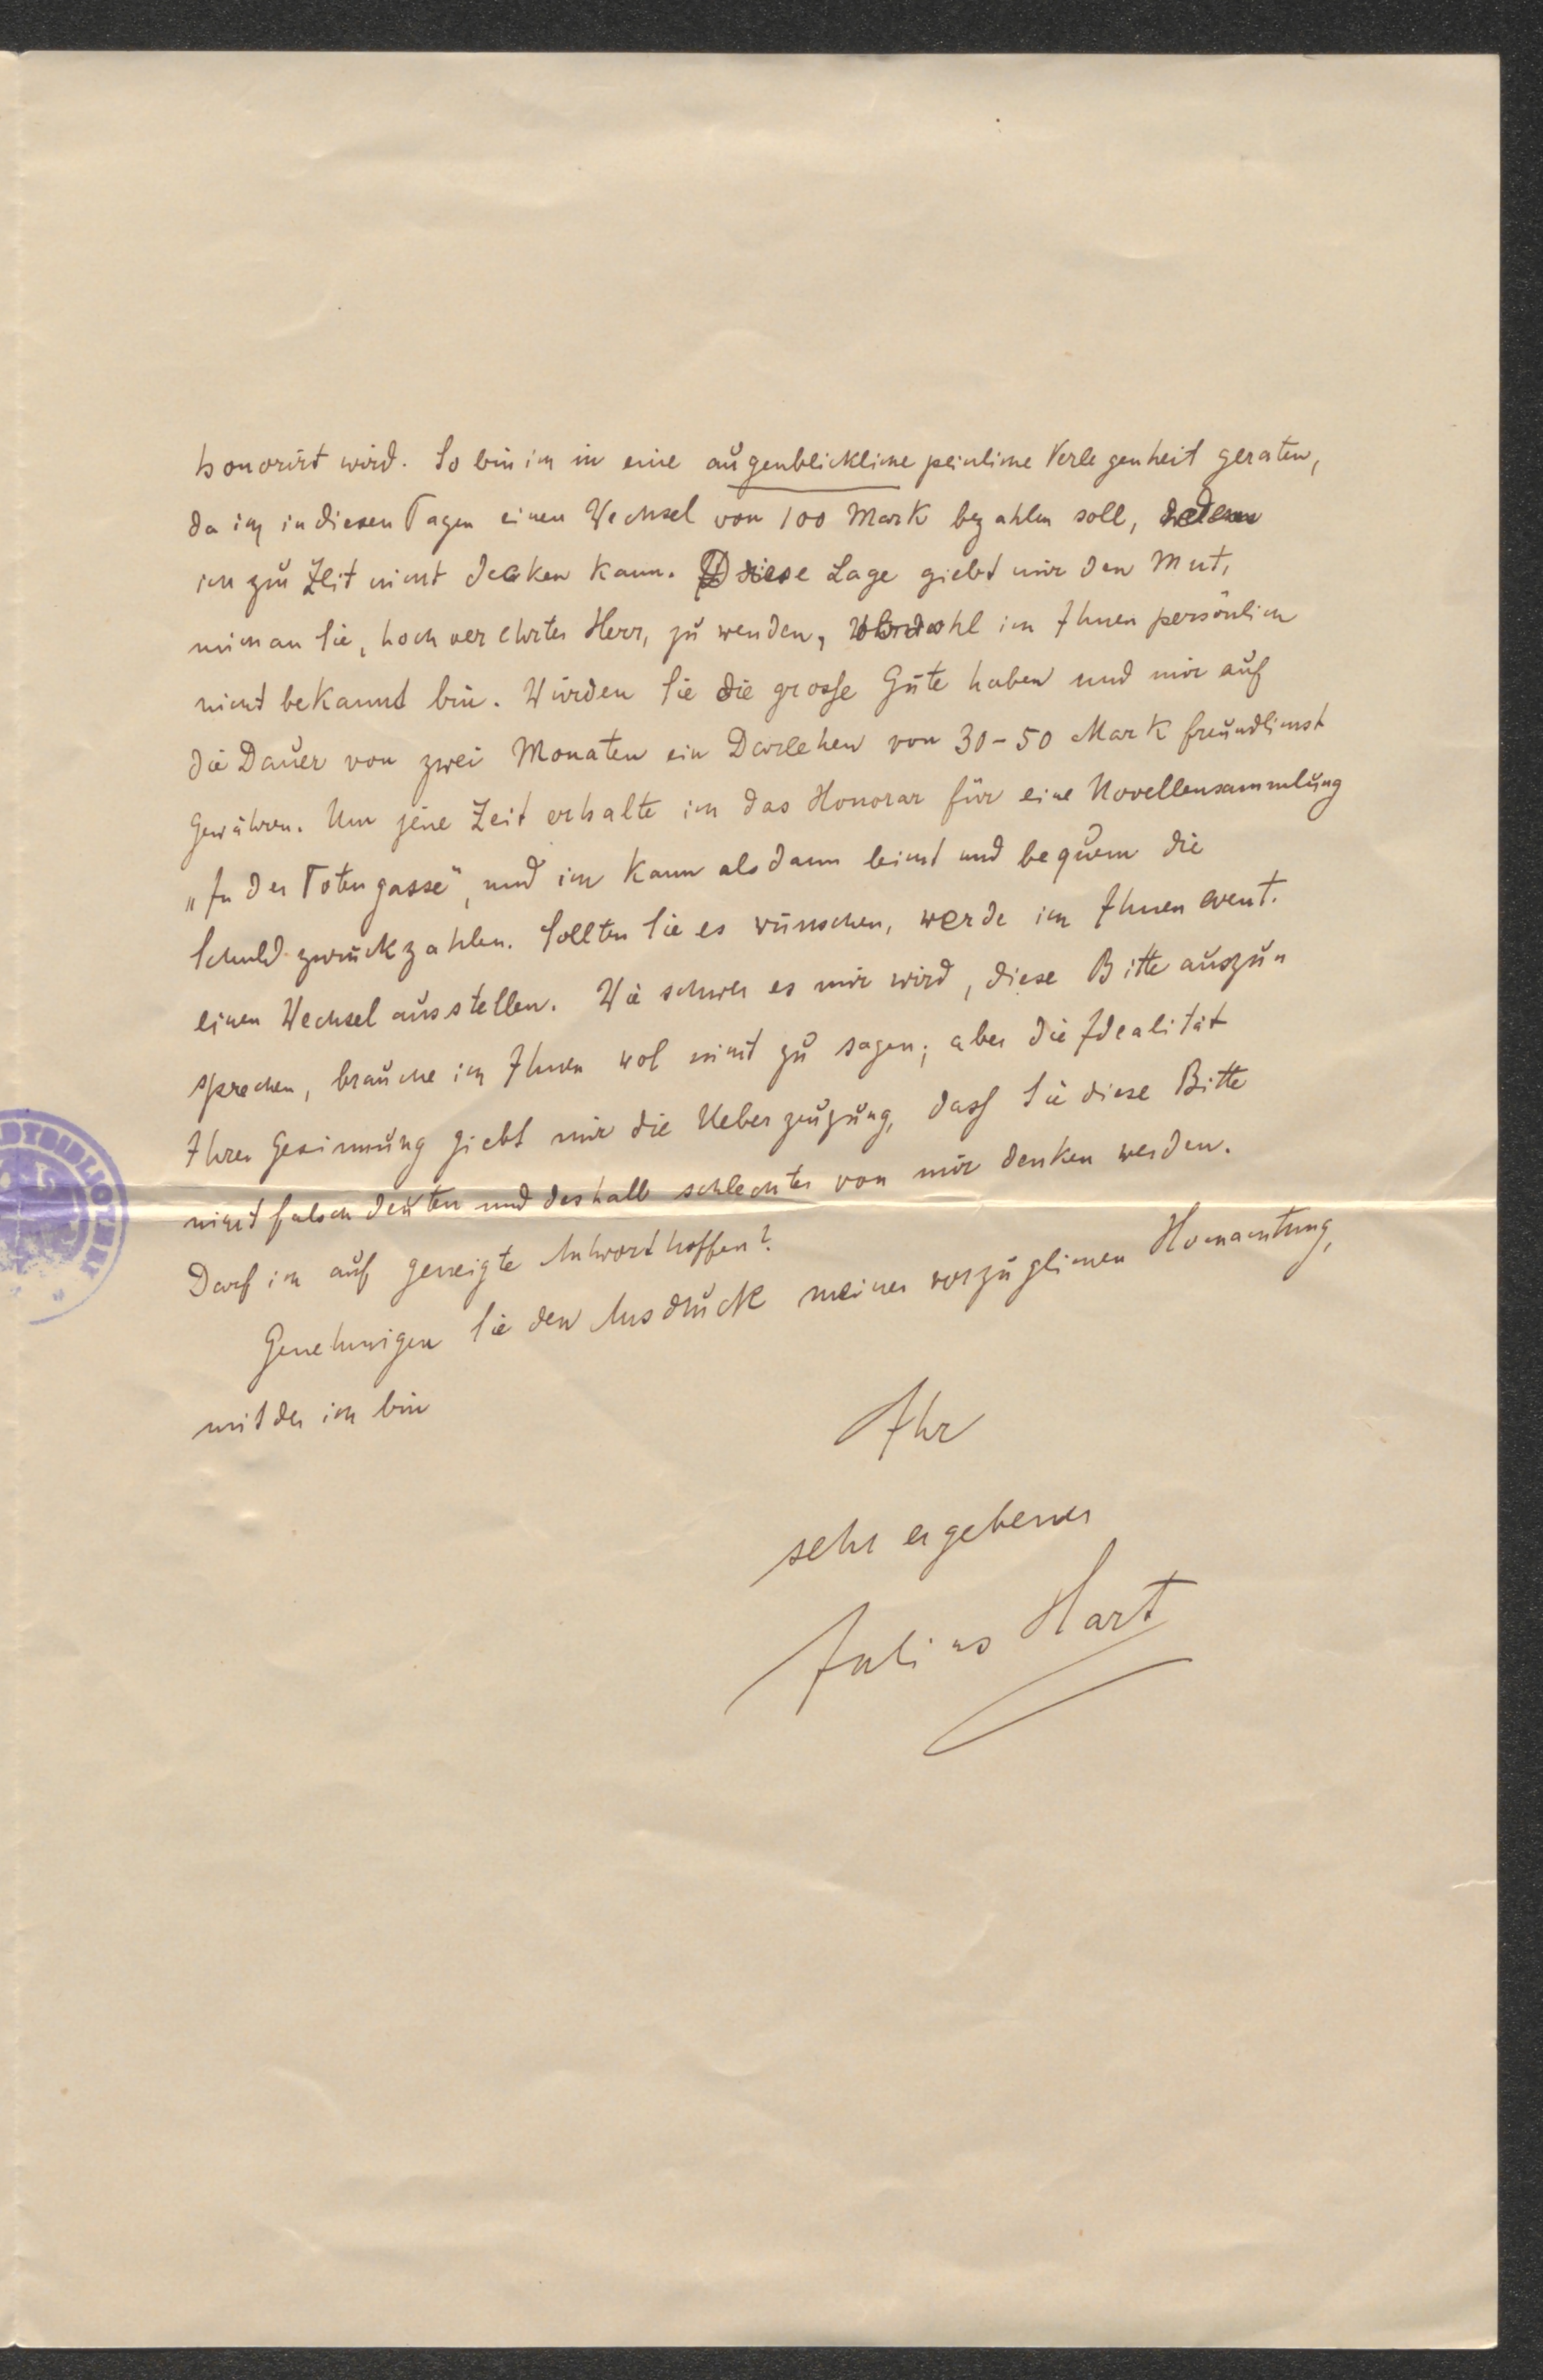 honorirt wird. So bin ich in eine augenblickliche peinliche Verlegenheit geraten,
da ich in diesen Tagen einen Wechsel von 100 Mark bezahlen soll,
ich zur Zeit nicht decken kann. Diese Lage giebt mir den Mut,
mich an Sie, hochverehrter Herr, zu wenden, obwohl ich Ihnen persönlich
nicht bekannt bin. Würden Sie die grosse Güte haben und mir auf
die Dauer von zwei Monaten ein Darlehen von 30-50 Mark freundlichst
gewähren. Um jene Zeit erhalte ich das Honorar für eine Novellensammlung
„In der Totengasse", und ich kann alsdann leicht und bequem die
Schuld zurückzahlen. Sollten Sie es wünschen, werde ich Ihnen event.
einen Wechsel ausstellen. Wie schwer es mir wird, diese Bitte auszu
sprechen, brauche ich Ihnen wol nicht zu sagen; aber die Idealität
Ihrer Gesinnung giebt mir die Ueberzeugung, dass Sie diese Bitte
nicht falsch deuten und deshalb schlechter von mir denken werden.
Darf ich auf geneigte Antwort hoffen?
Genehmigen Sie den Ausdruck meiner vorzüglichen Hochachtung,
mit der ich bin
Ihr
sehr ergebener
Julius Hart